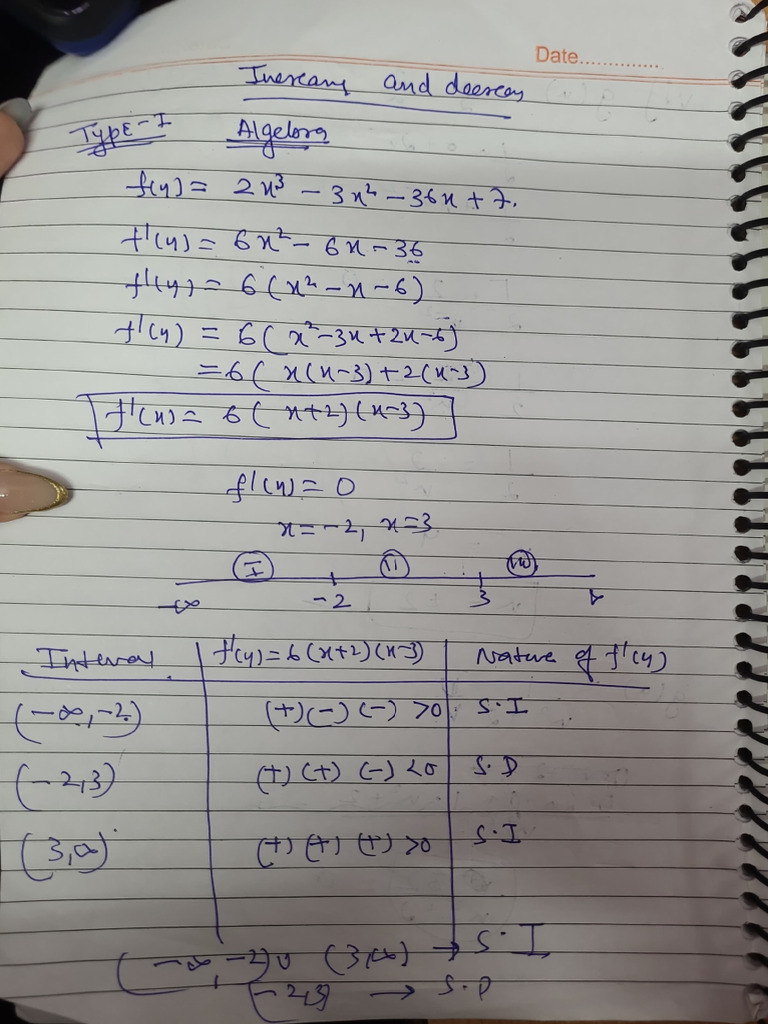 Date..............
Increany and deereas
TYPE-I Algebra
f(x) = 2x³ - 3x² - 36x + 7.
f'(x) = 6x² - 6x - 36
f'(x) = 6(x² - x - 6)
f'(x) = 6(x² - 3x + 2x - 6)
= 6(x(x-3) + 2(x-3))
f'(x) = 6(x+2)(x-3)
f'(x) = 0
x = -2, x = 3
I II III
-∞ -2 3
Interval f'(x) = 6(x+2)(x-3) Nature of f'(x)
(-∞, -2) (+)(-)(-) >0 S.I
(-2,3) (+)(+)(-) <0 S.D
(3,∞) (+)(+)(+) >0 S.I
(-∞, -2) ∪ (3,∞) → S.I
(-2,3) → S.D